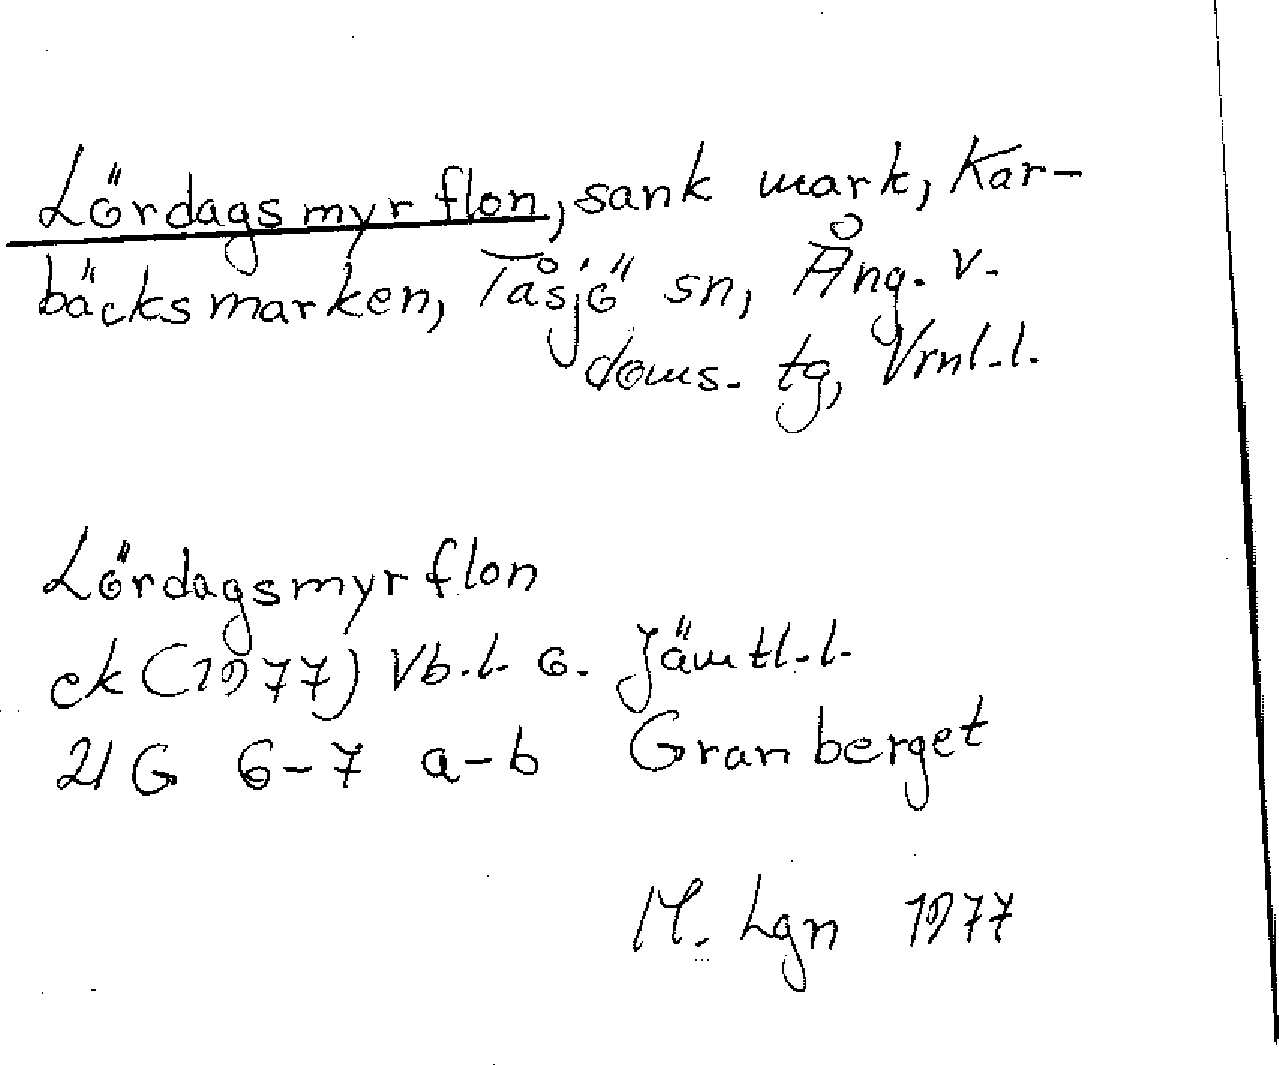 Lördagsmyrflon, sank mark, Kar-
bäcksmarken, Tåsjö sn, Ång. v.
doms. tg, Vrnl.l.
Lördagsmyrflon
ek (1977) Vb.l. o. Jämtl.l.
21G 6-7 a-b Granberget
M. Lgn 1977